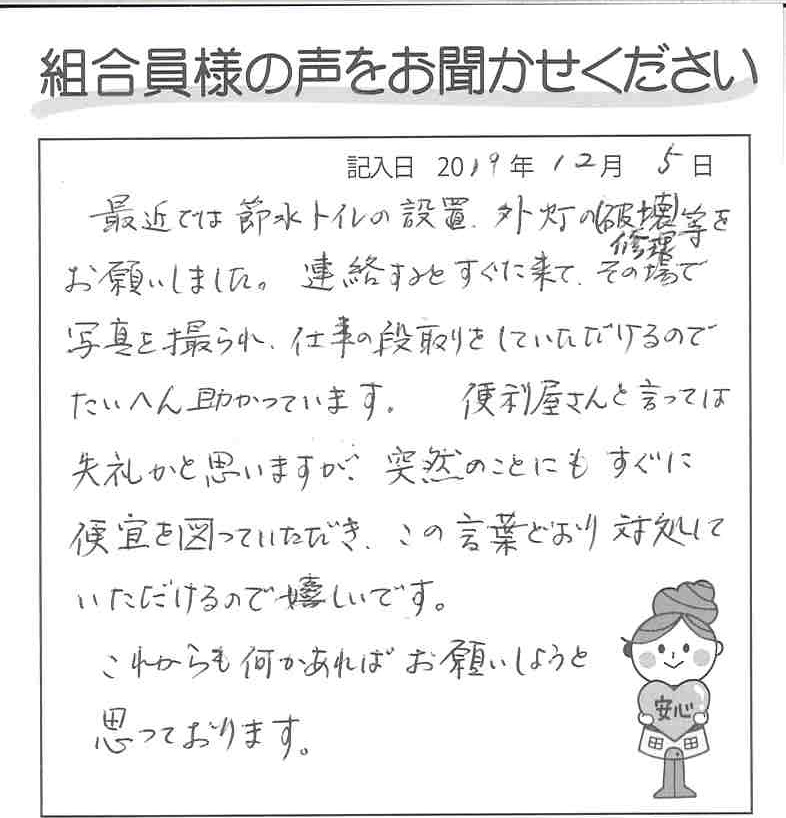 組合員様の声をお聞かせください
記入日 2019年 12月 5日
最近では節水トイレの設置、外灯の(破壊)等を
修理
お願いしました。 連絡するとすぐに来て、その場で
写真を撮られ、仕事の段取りをしていただけるので
たいへん助かっています。 便利屋さんと言っては
失礼かと思いますが、突然のことにも すぐに
便宜を図っていただき、この言葉どおり 対処して
いただけるので嬉しいです。
これからも何かあればお願いしようと
思っております。
安心